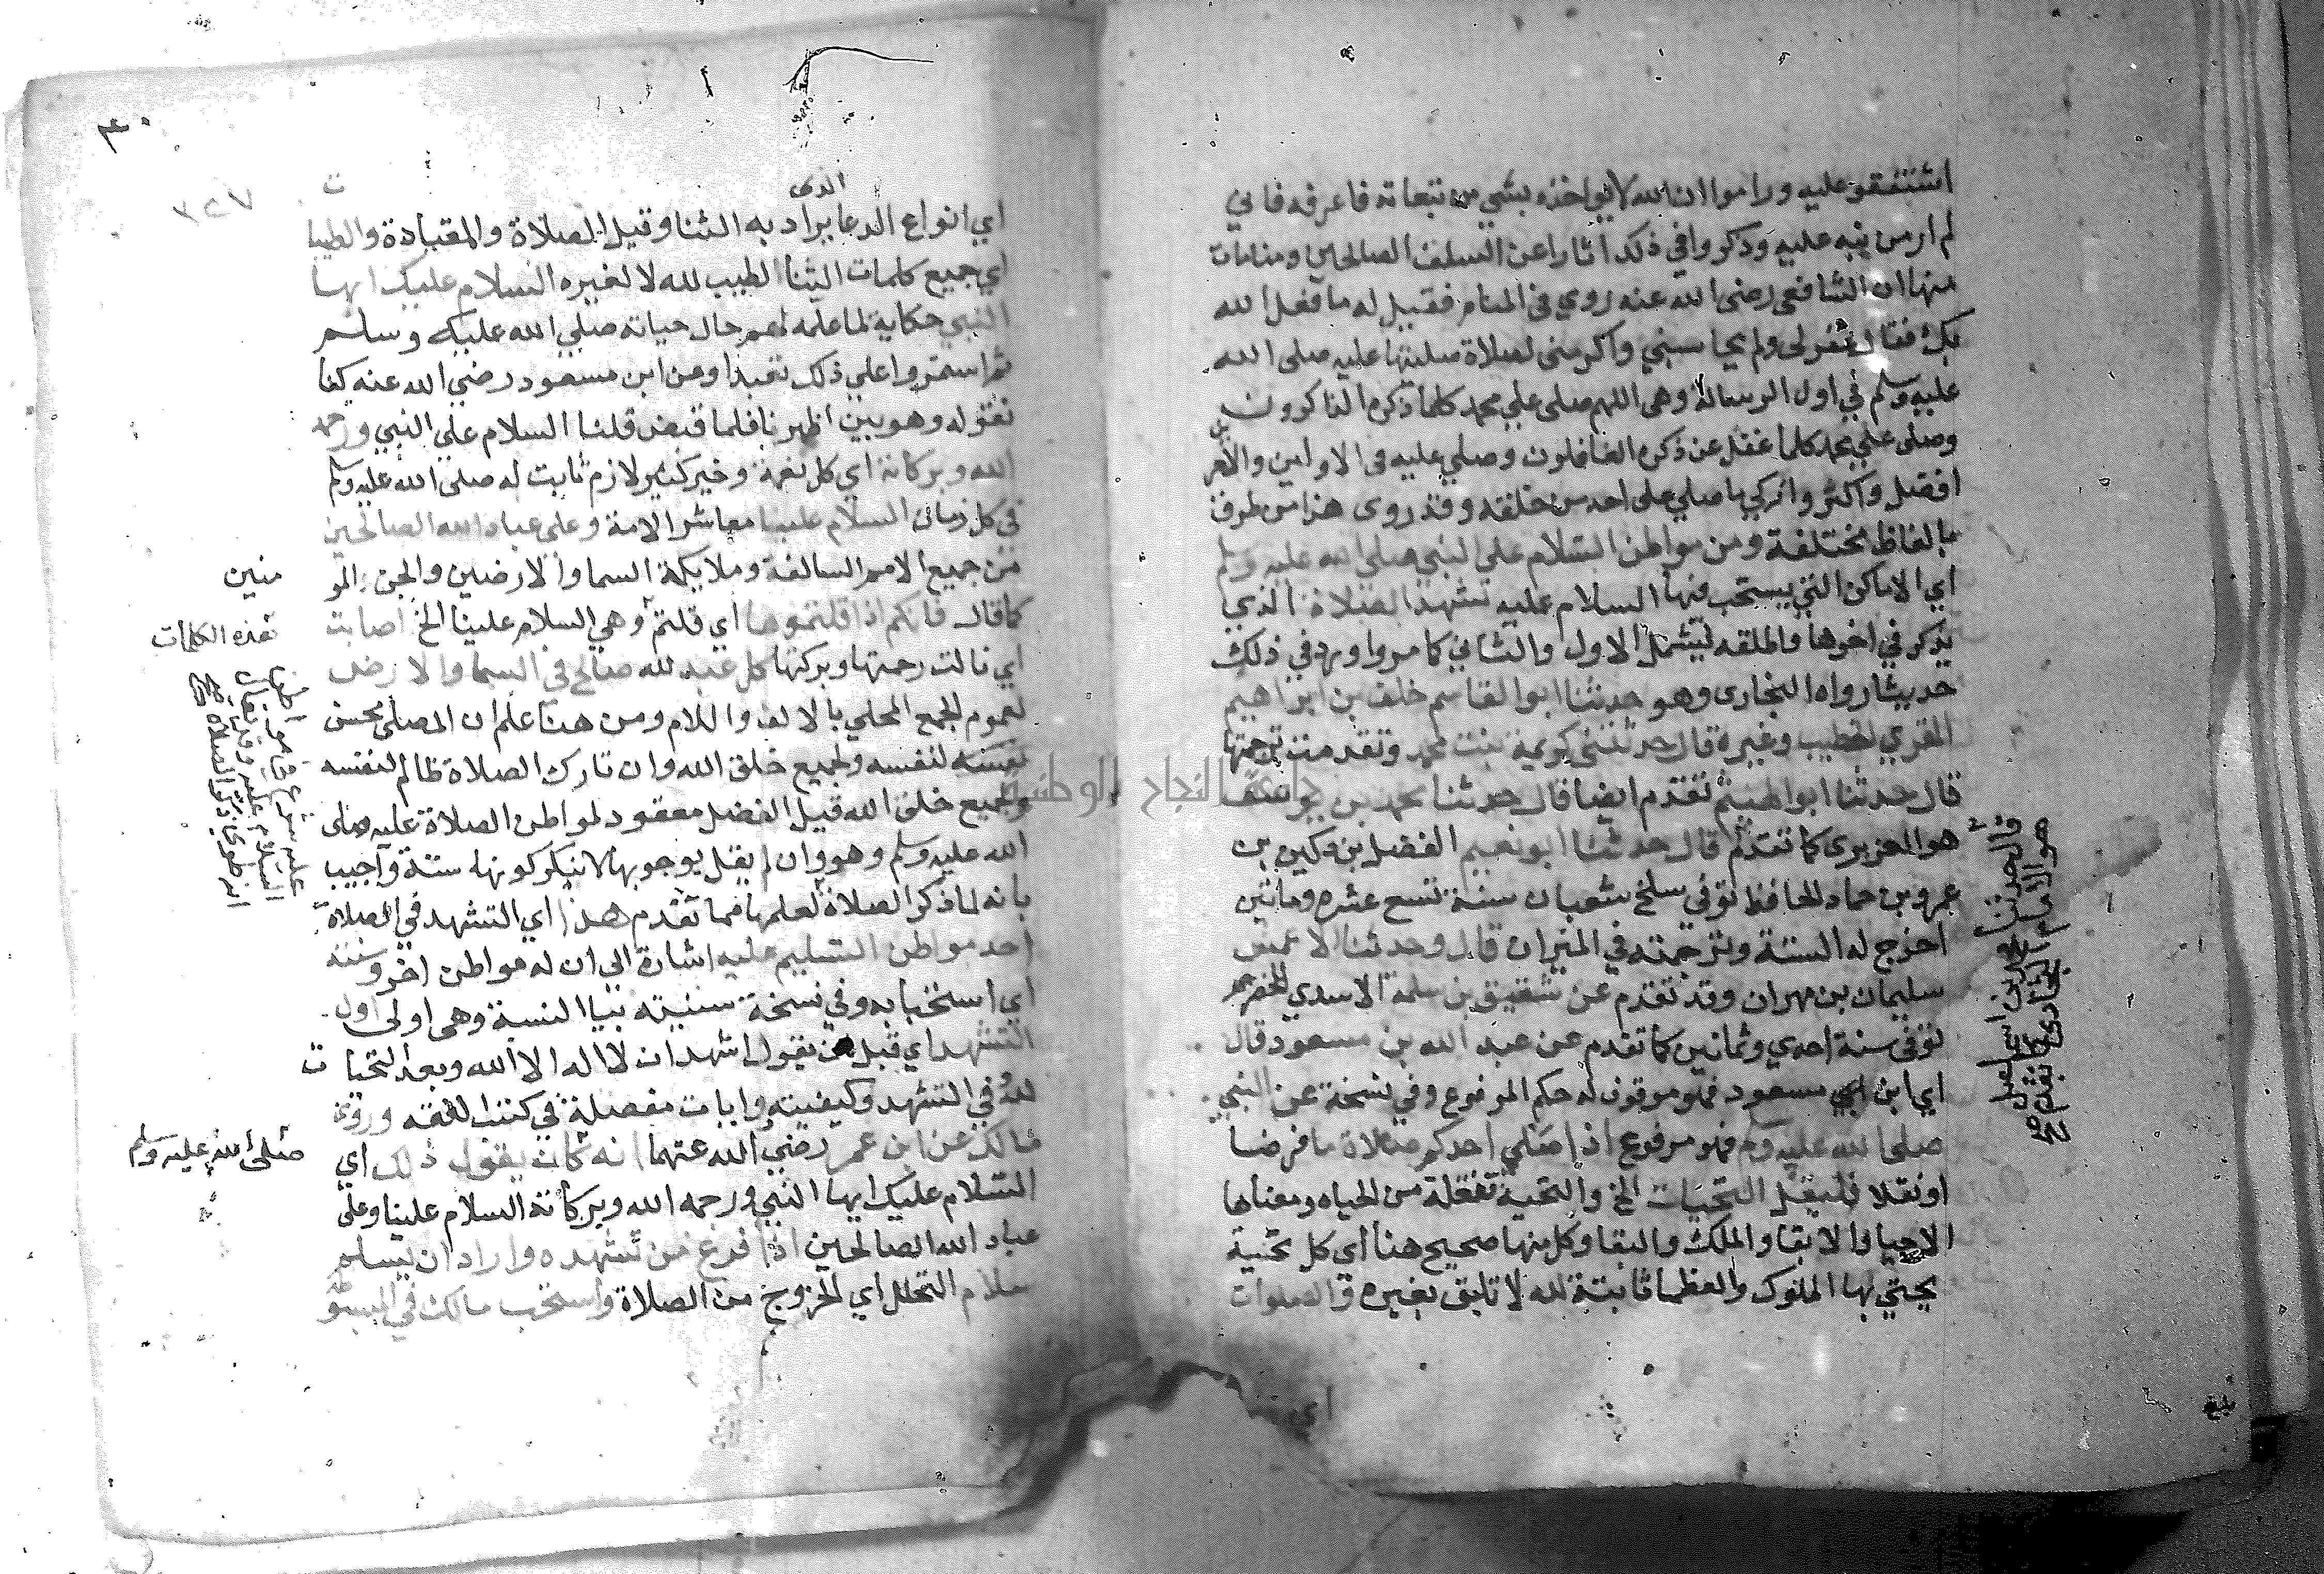 اشتقفو عليه وراموا ان الله لا يواخذه بشي من تبعاته فاعرفه فاني
لم ار من نبه عليه وذكروا في ذلك اثارا عن السلف الصالحين ومنامات
منها ان الشافعي رضي الله عنه روي في المنام فقيل له ما فعل الله
بك فقال غفر لي ولم يحاسبني واكرمني لصلاة صليتها عليه صلى الله
عليه وسلم في اول الرسالة وهي اللهم صلى علي محمد كلما ذكره الذاكرون
وصلى علي محمد كلما غفل عن ذكره الغافلون وصلي عليه في الاولين والاخر
ين
افضل واكثر وازكي ما صلي على احد من خلقه وقد روى هذا من طرف
بالفاظ مختلفة ومن مواطن السلام على النبي صلى الله عليه وسلم
اي الاماكن التي يستحب فيها السلام عليه تشهد الصلاة الذي
يذكر في اخرها واطلقه ليشمل الاول والثاني كما مر وا ورد في ذلك
حديثا رواه البخاري وهو حدثنا ابو القاسم خلف بن ابراهيم
المقري الخطيب وغيره قال حدثتني كريمة بنت محمد وتقدمت ترجمتها
قال حدثنا ابو الهيثم تقدم ايضا قال حدثنا محمد بن يوسف
هو الفربري كما تقدم قال حدثنا ابو نعيم الفضل بن دكين بن
عمرو بن حماد الحافظ توفي سلخ شعبان سنة تسع عشره وماتين
اخرج له الستة وترجمته في الميزان قال وحدثنا الاعمش
سليمان بن مهران وقد تقدم عن شقيق بن سلمة الاسدي المخضرم
توفى سنة احدي وثمانين كما تقدم عن عبد الله بن مسعود قال
اي ابن ابي مسعود فهو موقوف له حكم المرفوع وفي نسخة عن النبي
صلى الله عليه وسلم فهو مرفوع اذا صلي احدكم صلاة ما فرضا
او نفلا فليقل التحيات الخ والتحية تفعلة من الحياه ومعناها
الاحيا والابقا والملك والبقا وكل منها صحيح هنا اي كل تحية
يحيي بها الملوك والعظما ثابتة لله لا تليق بغيره والصلوات
قال حدثنا محمد بن اسماعيل
هو الامام البخاري كما تقدم
اي
بلغ
٣٠
٣٢٧
الذي
اي انواع الدعا يراد به الثنا وقيل الصلاة والمقبادة والطيبا
ت
اي جميع كلمات الثنا الطيب لله لا لغيره السلام عليك ايها
النبي حكاية لما علمه لهم حال حياته صلي الله عليه وسلم
ثم استمروا علي ذلك تعبدا وعن ابن مسعود رضي الله عنه كنا
نقوله وهو بين اظهرنا فلما قبض قلنا السلام علي النبي ورحمه
الله وبركاته اي كل نعمة وخير كثير لازم ثابت له صلى الله عليه وسلم
في كل زمان السلام علينا معاشر الامة وعلى عباد الله الصالحين
من جميع الامم السالفة وملايكة السما والارضين والجن المو
منين
كما قال فانكم اذا قلتموها اي قلتم وهي السلام علينا الخ اصابت
هذه الكلمات
اي نالت رحمتها وبركتها كل عبد لله صالح في السما والارض
لعموم الجمع المحلي بالالف واللام ومن هنا علم ان المصلي محسن
لنفسه ولجميع خلق الله وان تارك الصلاة ظالم لنفسه
ولجميع خلق الله قيل الفصل معقود لمواطن الصلاة عليه صلى
الله عليه وسلم وهو وان لم يقل بوجوبها لا ينكر كونها سنة واجيب
بانه لما ذكر الصلاة لعلمها مما تقدم هذا اي التشهد في الصلاة
احد مواطن التسليم عليه اشارة الى ان له مواطن اخر وسننه
اي استحبابه وفي نسخة سنيته بيا النسبة وهي اولى اول
التشهد اي قبل من يقول اشهد ان لا اله الا الله وبعد التحيا ت
لله وفي التشهد وكيفيته روايات مفصلة في كتب الفقه وروي
مالك عن ابن عمر رضي الله عنهما انه كان يقول ذلك اي
صلى الله عليه وسلم
السلام عليك ايها النبي ورحمه الله وبركاته السلام علينا وعلى
عباد الله الصالحين اذا فرغ من تشهده واراد ان يسلم
سلام التحلل اي الخروج من الصلاة واستحب مالك في المبسوط
جامعة النجاح الوطنية